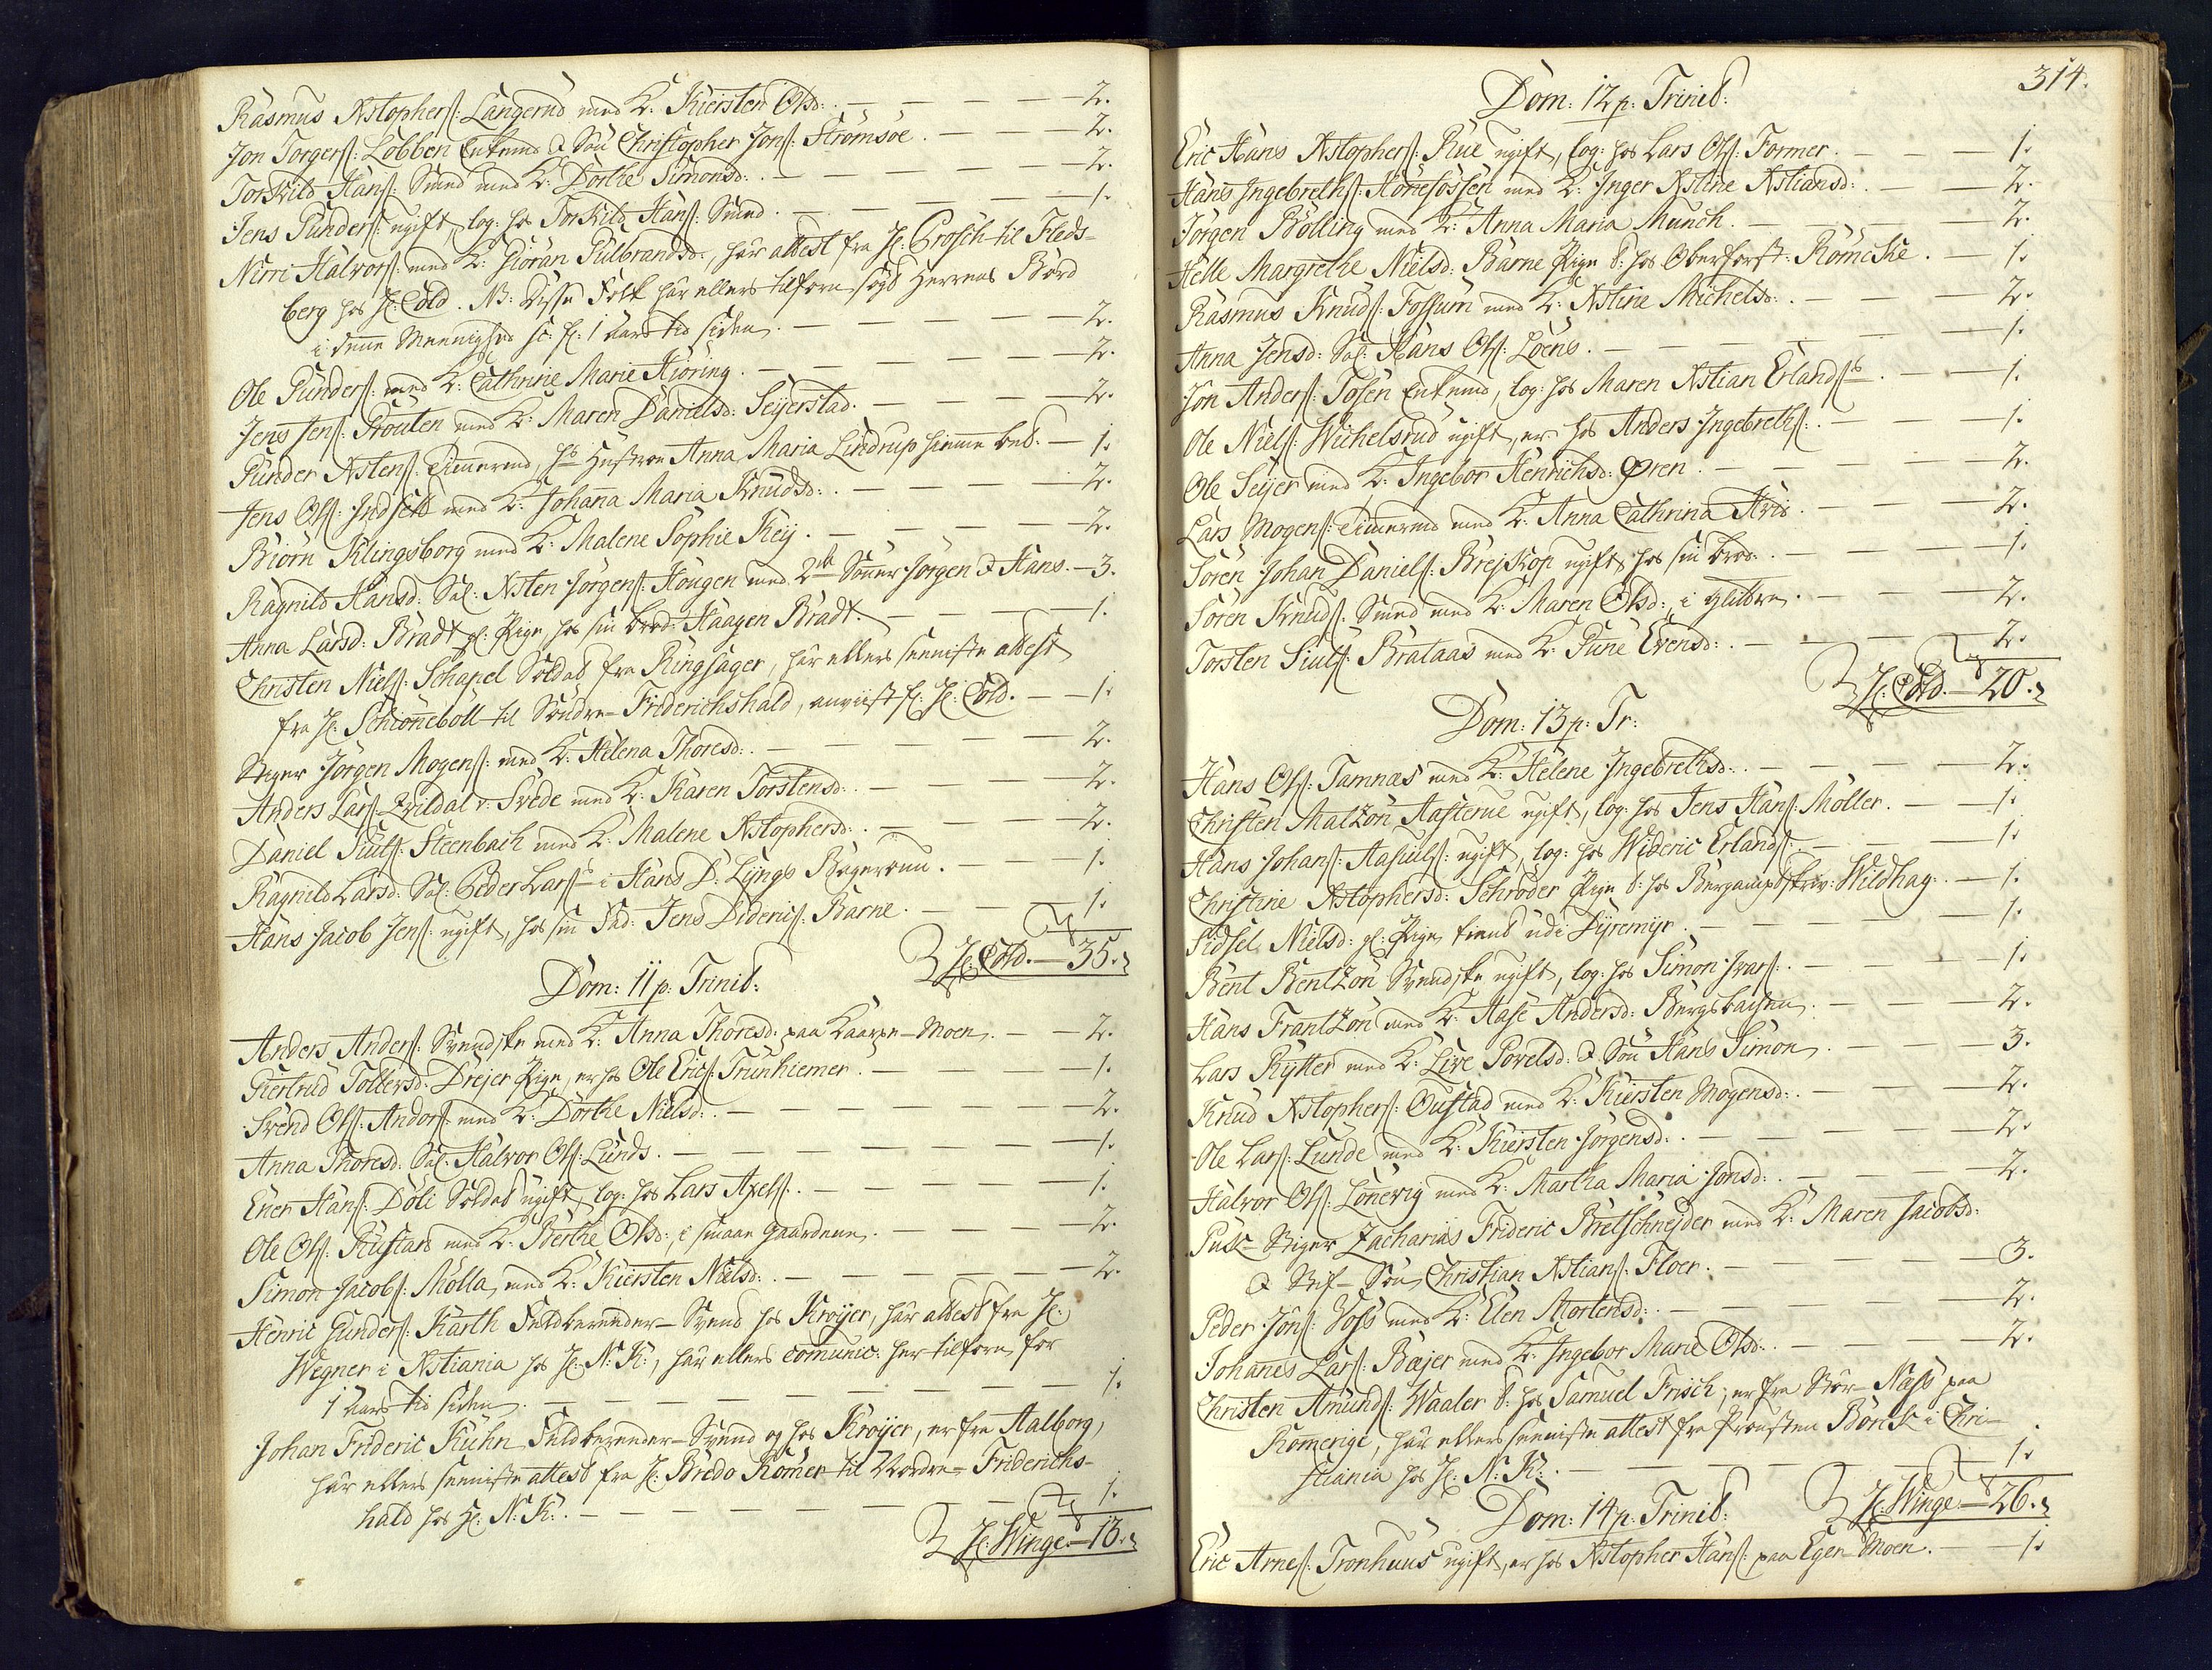 Rasmus Xstophers: Langerud med K: Kiersten Olsd: . — 2.
Jon Torgers: Lobben Enkemd & Søn Christopher Jons: Strømsøe . — 2.
Torkild Hans: Smed med K: Dorthe Simonsd: . — 2.
Jens Gunders: ugift, log: hos Torkild Hans: Smed . — 1.
Nirri Halvors: med K: Giøran Gulbrandsd:, har attest fra H: Grosch til Fleds-
berg hos H: Cold. NB: Disse Folk har ellers tilforn søgt Herrens Bord
i denne Meenighed for 1 Aars tid siden . — 2.
Ole Gunders: med K: Cathrine Marie Hiøring . — 2.
Jens Jens: Prouten med K: Maren Danielsd: Seijerstad. — 2.
Gunder Xstens: Timermd, hs Hustroe Anna Maria Lindrup hiemme bet. — 1.
Jens Ols: Indset med K: Johanna Maria Knudsd: . — 2.
Biørn Klingsborg med K: Malene Sophie Keij . — 2.
Ragnild Hansd: Sal: Xsten Jørgens: Hougen med 2de Sønner Jørgen & Hans. — 3.
Anna Larsd: Bradt gl: Pige hos sin brod: Haagen Bradt. — 1.
Christen Niels: Schapel Soldat fra Ringsager, har ellers senniste attest
fra H: Schiønnebøll til Søndre-Friderichshald, anviist fr: H: Cold. — 1.
Stiger Jørgen Mogens: med K: Helena Thoresd: . — 2.
Anders Lars: Qvildal v: Svede med K: Karen Torstensd: . — 2.
Daniel Siuls: Steenbach med K: Malene Xstophersd: . — 2.
Ragnild Larsd: Sal: Peder Lars: i Hans D: Lyngs Bageroum . — 1.
Hans Jacob Jens: ugift, hos sin Fad: Jens Dideric: Barne . — 1.
H: Cold. — 35.
Dom: 11 p: Trinit:
Anders Anders: Svendske med K: Anna Thoresd: paa Kaaren-Moen . — 2.
Giertrud Tollersd: Drejer Pige, er hos Ole Erics: Trunhiemer . — 1.
Svend Ols: Andors: med K: Dorthe Nielsd: . — 2.
Anna Thoresd: Sal: Halvor Ols: Lunds . — 1.
Ener Hans: Døli Soldat ugift, log: hos Lars Axels: . — 1.
Ole Ols: Rustad med K: Berthe Olsd:, i smaae Gaardene . — 2.
Simon Jacobs: Molla, med K: Kiersten Nielsd: . — 2.
Henric Gunders: Karth Feldbereeder-Svend hos Krøyer, har attest fra H:
Wegner i Xstiania hos H: N: K:, har ellers comunic: her tilforn for
1 Aars tid siden . — 1.
Johan Frideric Kühn Feldbereeder-Svend og hos Krøyer, er fra Aalborg,
har ellers senniste attest fra H: Bredo Rømer til Nordre-Friderichs-
hald hos H: N: K: . — 1.
H: Winge. — 13.
314.
Dom: 12 p: Trinit:
Eric Hans Xstophers: Rue ugift, log: hos Lars Ols: Former . — 1.
Hans Ingebreths: Hønefossen med K: Inger Xstine Xstiansd: . — 2.
Jørgen Bølling med K: Anna Maria Munch . — 2.
Helle Margrethe Nielsd: Barne Pige t: hos Oberforst: Rømcke . — 1.
Rasmus Knuds: Fossum med K: Xstine Michelsd: . — 2.
Anna Jensd: Sal: Hans Ols: Loens . — 1.
Jon Anders: Tosen Enkemd, log: hos Maren Xstian Erlands: . — 1.
Ole Niels: Wichelsrud ugift, er hos Anders Ingebreths: . — 1.
Ole Seijer med K: Ingebor Henrichsd: Øren . — 2.
Lars Mogens: Timermd med K: Anna Cathrina Aris . — 2.
Søren Johan Daniels: Brejskop ugift hos sin brod: . — 1.
Søren Knuds: Smed med K: Maren Olsd: i Glitre . — 2.
Torsten Siuls: Brataas med K: Gune Evensd: . — 2.
H: Cold. — 20.
Dom: 13 p: Tr:
Hans Ols: Tamnæs med K: Helene Ingebrethsd: . — 2.
Christen Matzøn Aasterue ugift, log: hos Jens Hans: Møller . — 1.
Hans Johans: Aasuls: ugift, log: hos Wideric Erlands: . — 1.
Christine Xstophersd: Schrøder Pige t: hos Bergamptskriv: Wildhag . — 1.
Sidsel Nielsd: gl: Pige, frans udi Dyremyr . — 1.
Bent Bentzøn Svendske ugift, log: hos Simon Ivars: . — 1.
Hans Frantzøn med K: Aase Andersd: Bergsbachen . — 2.
Lars Rytter med K: Live Povelsd: & Søn Hans Simon . — 3.
Knud Xstophers: Oustad med K: Kiersten Mogensd: . — 2.
Ole Lars: Lunde med K: Kiersten Jørgensd: . — 2.
Halvor Ols: Lønevig med K: Martha Maria Jonsd: . — 2.
Puk-Stiger Zacharias Frideric Bretschnejder med K: Maren Jacobsd:
& Stif-Søn Christian Xstians: Floer . — 3.
Peder Jons: Voss med K: Elen Mortensd: . — 2.
Johanes Lars: Bøejer med K: Ingebor Marie Olsd: . — 2.
Christen Amunds: Waaler t: hos Samuel Frisch, er fra Stor-Næss paa
Romerige, har ellers senniste attest fra Provsten Borck i Chri-
stiania hos H: N: K: . — 1.
H: Winge — 26.
Dom: 14 p: Trinit:
Eric Arnes: Tronhuus ugift, er hos Xstopher Hans: paa Egen-Moen . — 1.